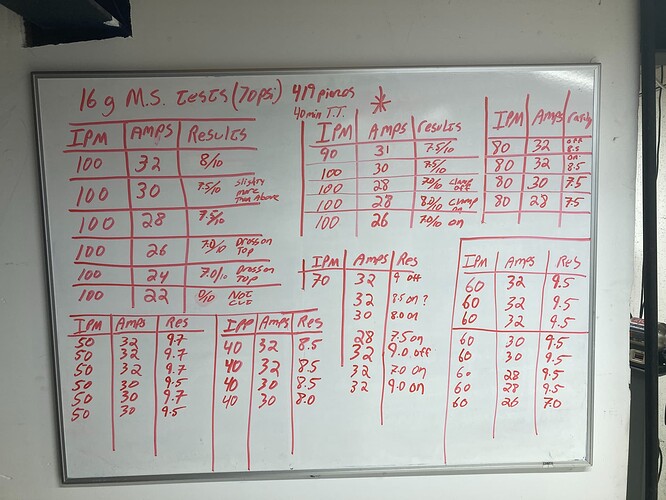 16 g M.S. tests (70psi) 419 pierces
40 min T.T.
IPM AMPS Results
100 32 8/10
100 30 7.5/10 slightly more than Above
100 28 7.5/10
100 26 7.0/10 Dross on Top
100 24 7.0/10 Dross on Top
100 22 0/10 Not Cut
IPM AMPS results
90 31 7.5/10
100 30 7.5/10
100 28 7.0/10 clamp off
100 28 8.0/10 clamp on
100 26 7.0/10 on
IPM Amps
80 32 off 8.5
80 32 on 8.5
80 30 7.5
80 28 7.5
IPM Amps Res
70 32 9 off
32 8.5 on?
30 8.0 on
28 7.5 on
32 9.0 off
32 7.0 on
32 9.0 on
IPM Amps Res
60 32 9.5
60 32 9.5
60 32 9.5
60 30 9.5
60 30 9.5
60 28 9.5
60 28 9.5
60 26 7.0
IPM Amps Res
50 32 9.7
50 32 9.7
50 32 9.7
50 30 9.5
50 30 9.7
50 30 9.5
IPP Amps Res
40 32 8.5
40 32 8.5
40 30 8.5
40 30 8.0